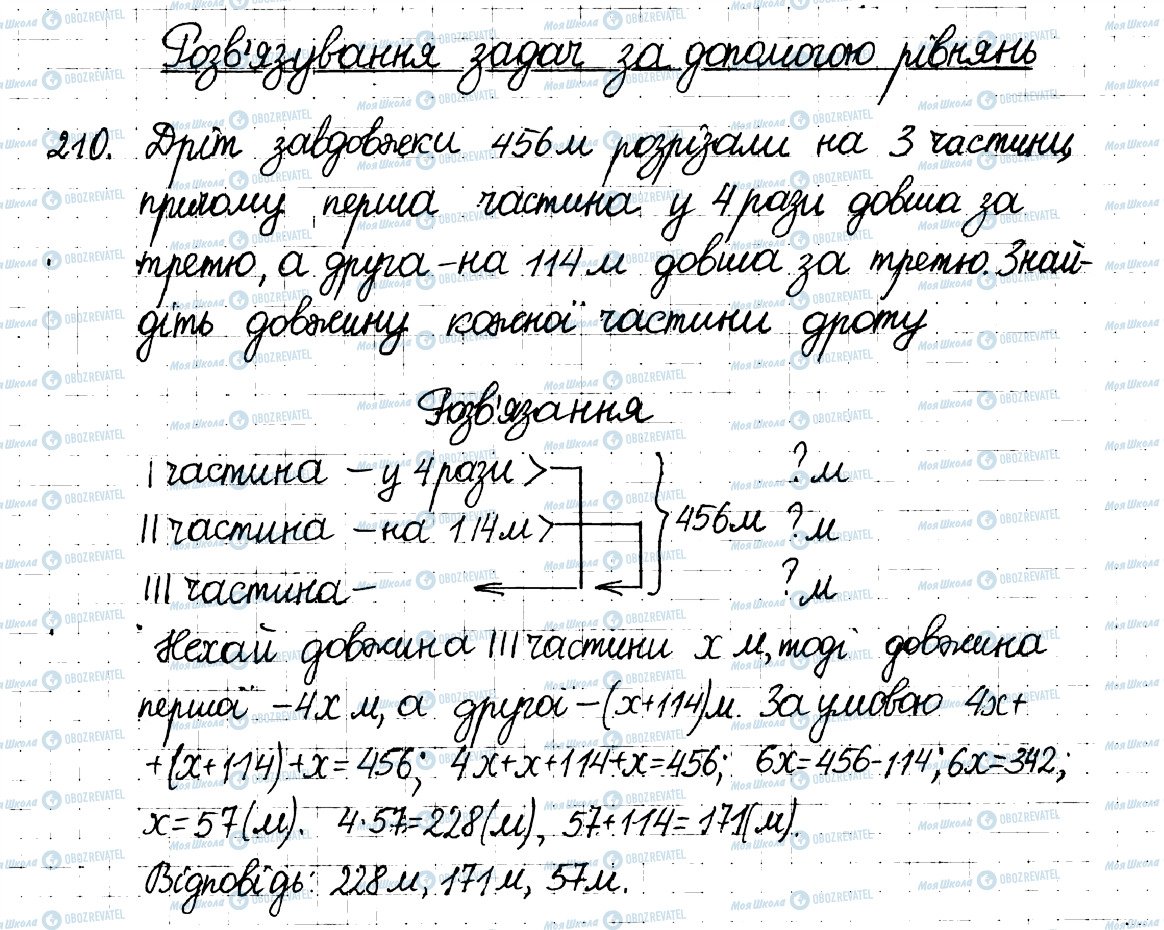 Розв'язування задач за допомогою рівнянь
210. Дріт завдовжки 456 м розрізали на 3 частини,
причому перша частина у 4 рази довша за
третю, а друга – на 114 м довша за третю. Знай-
діть довжину кожної частини дроту
Розв'язання
I частина – у 4 рази > ? м
II частина – на 114 м > } 456 м ? м
III частина – ? м
Нехай довжина III частини x м, тоді довжина
першої – 4x м, а другої – (x+114) м. За умовою 4x+
+(x+114)+x=456; 4x+x+114+x=456; 6x=456-114; 6x=342;
x=57 (м). 4·57=228 (м), 57+114=171 (м).
Відповідь: 228 м, 171 м, 57 м.